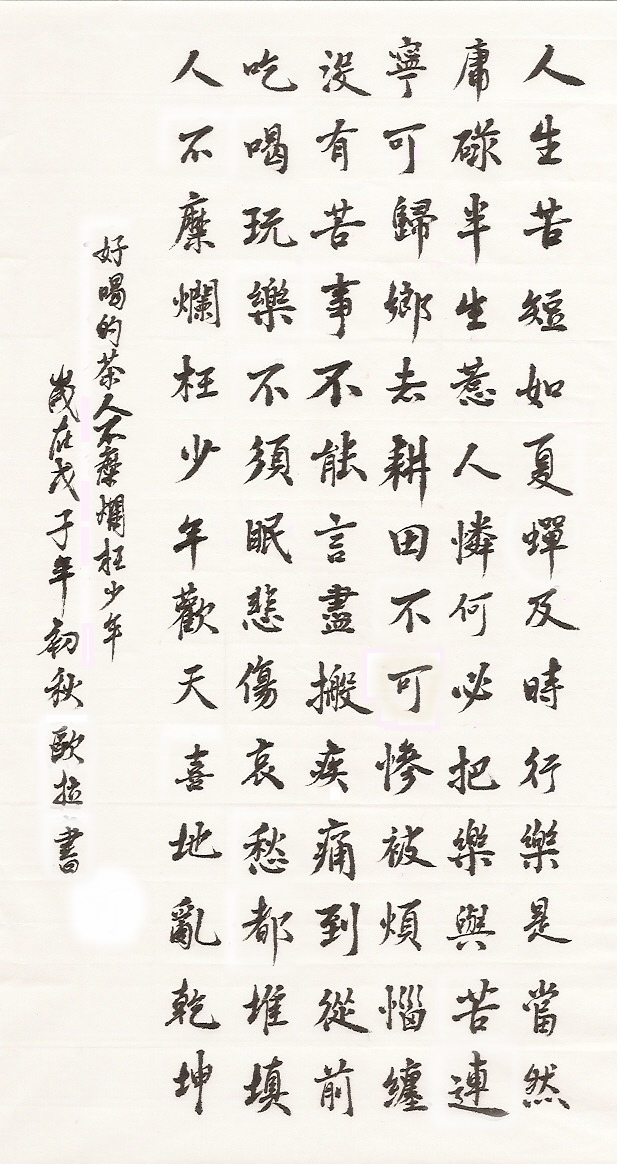 人生苦短如夏蟬及時行樂是當然
庸碌半生惹人憐何必把樂與苦連
寧可歸鄉去耕田不可慘被煩惱纏
沒有苦事不能言盡搬疾痛到從前
吃喝玩樂不須眠悲傷哀愁都堆填
人不糜爛枉少年歡天喜地亂乾坤
好喝的茶人不糜爛枉少年
歲在戊子年初秋歐拉書